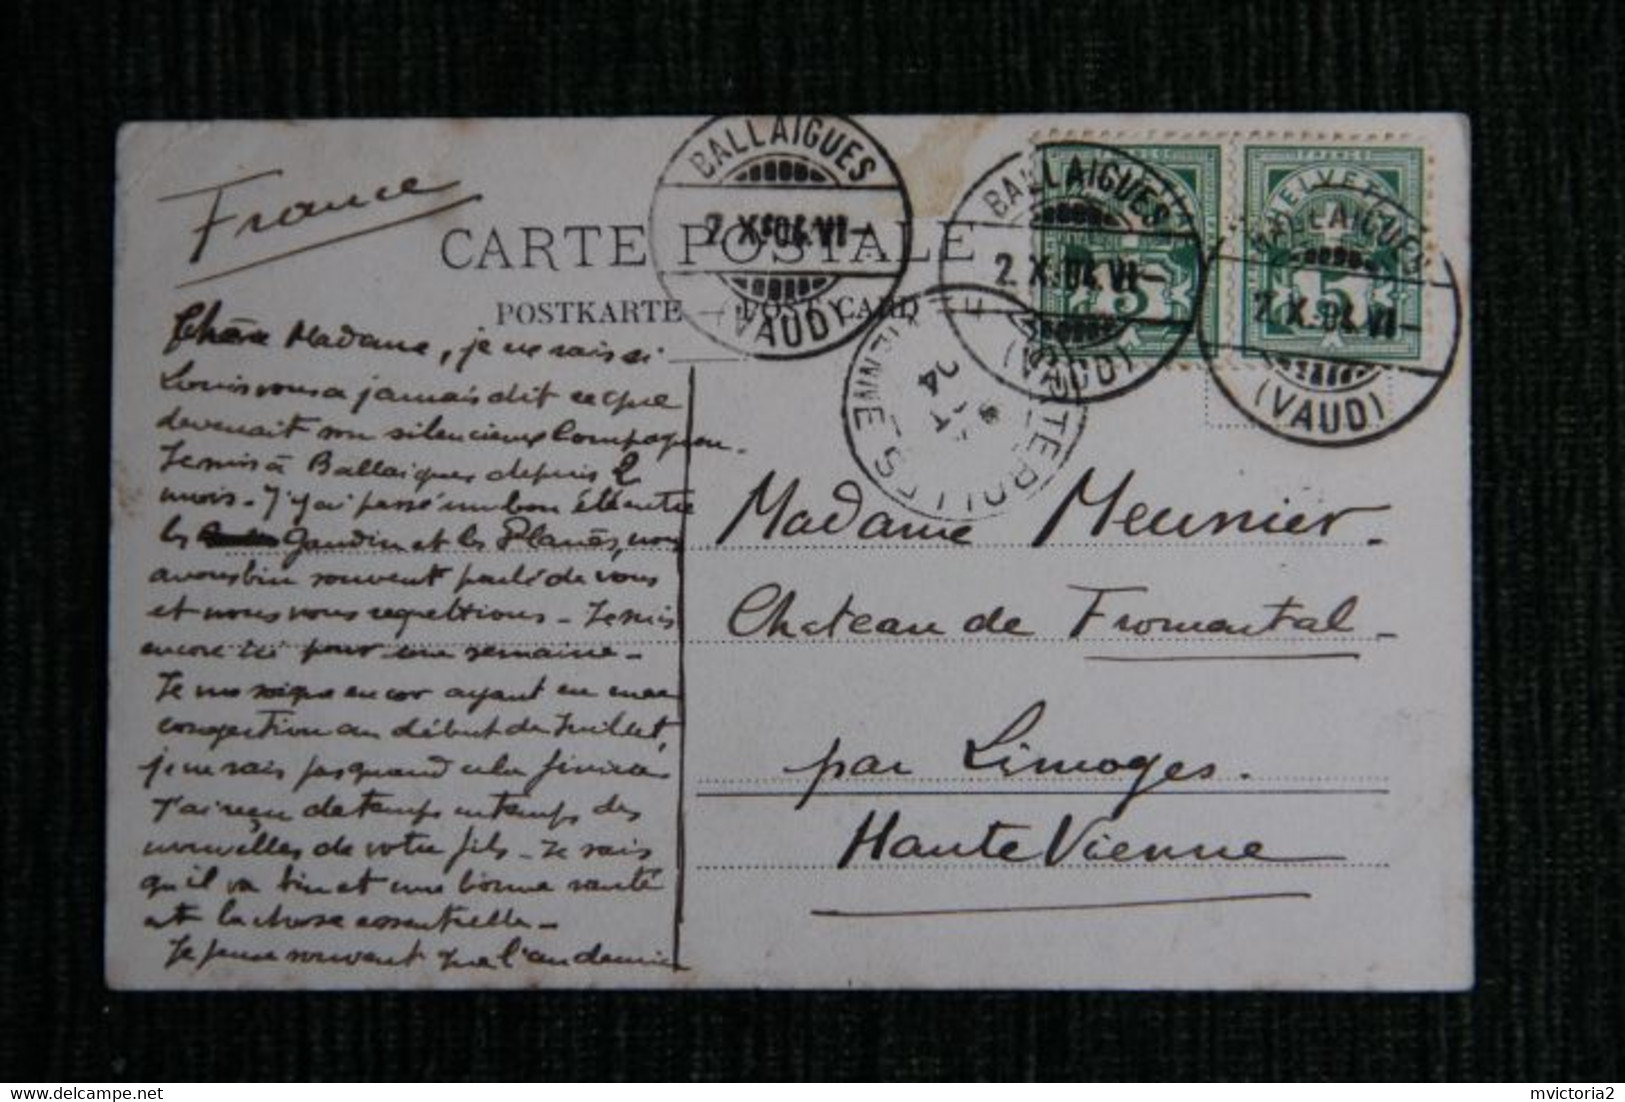 France
CARTE POSTALE
POSTKARTE — POST CARD
BALLAIGUES
2.X.04.VI—
(VAUD)
BALLAIGUES
2.X.04.VI—
(VAUD)
BALLAIGUES
2.X.04.VI—
(VAUD)
HELVETIA
FRANCO
5
5
VIENNE
OCT
04
Chère Madame, je ne sais si
Louis vous a jamais dit ce que
devenait son silencieux Compagnon.
Je suis à Ballaigues depuis 2
mois - J'y ai passé un bon été entre
les Gaudin et les Planès, nous
avons bien souvent parlé de vous
et nous vous regrettions - Je suis
encore ici pour une semaine -
Je me soigne encor ayant eu une
congestion au début de Juillet,
je ne sais pas quand cela finira
J'ai reçu de temps en temps des
nouvelles de votre fils - Je sais
qu'il va bien et une bonne santé
est la chose essentielle -
Je pense souvent que l'an dernier
Madame Meunier.
Chateau de Fromental -
par Limoges.
Haute Vienne
mvictoria2